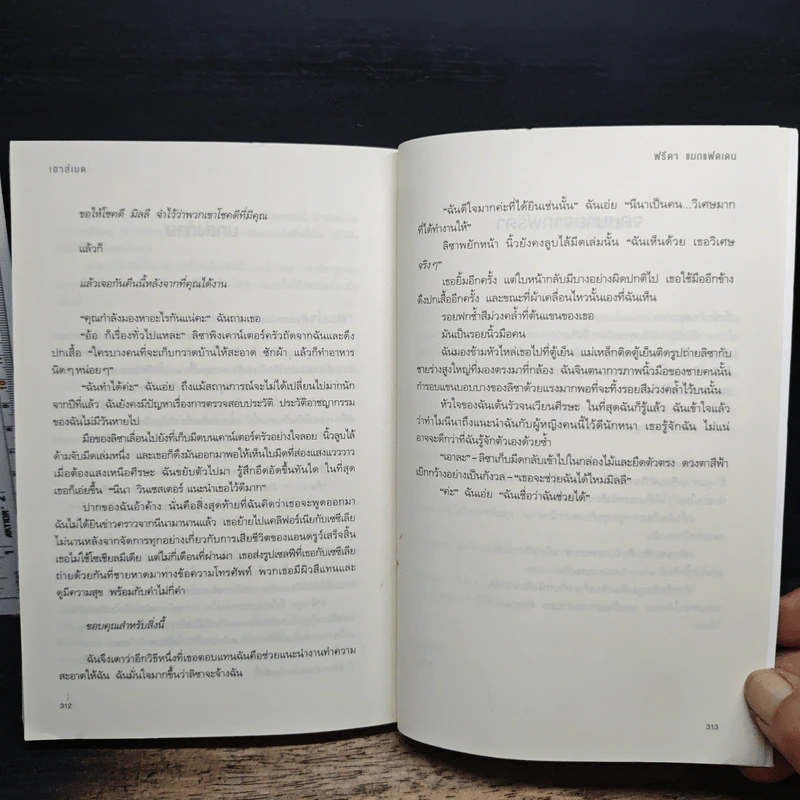 เฮาส์เมด
ขอให้โชคดี มิลลี จำไว้ว่าพวกเขาโชคดีที่มีคุณ
แล้วก็
แล้วเจอกันคืนนี้หลังจากที่คุณได้งาน
“คุณกำลังมองหาอะไรกันแน่คะ” ฉันถามเธอ
“อ้อ ก็เรื่องทั่วไปแหละ” ลิซาพิงเคาน์เตอร์ครัวถัดจากฉันและดึง
ปกเสื้อ “ใครบางคนที่จะเก็บกวาดบ้านให้สะอาด ซักผ้า แล้วก็ทำอาหาร
นิดๆ หน่อยๆ”
“ฉันทำได้ค่ะ” ฉันเอ่ย ถึงแม้สถานการณ์จะไม่ได้เปลี่ยนไปมากนัก
จากปีที่แล้ว ฉันยังคงมีปัญหาเรื่องการตรวจสอบประวัติ ประวัติอาชญากรรม
ของฉันไม่มีวันหายไป
มือของลิซาเลื่อนไปยังที่เก็บมีดบนเคาน์เตอร์ครัวอย่างใจลอย นิ้วลูบไล้
ด้ามจับมีดเล่มหนึ่ง และเธอก็ดึงมันออกมาพอให้เห็นใบมีดที่ส่องแสงแวววาว
เมื่อต้องแสงเหนือศีรษะ ฉันขยับตัวไปมา รู้สึกอึดอัดขึ้นทันใด ในที่สุด
เธอก็เอ่ยขึ้น “นีนา วินเชสเตอร์ แนะนำเธอไว้ดีมาก”
ปากของฉันอ้าค้าง นั่นคือสิ่งสุดท้ายที่ฉันคิดว่าเธอจะพูดออกมา
ฉันไม่ได้ยินข่าวคราวจากนีนามานานแล้ว เธอย้ายไปแคลิฟอร์เนียกับเซซีเลีย
ไม่นานหลังจากจัดการทุกอย่างเกี่ยวกับการเสียชีวิตของแอนดรูว์เสร็จสิ้น
เธอไม่ใช้โซเชียลมีเดีย แต่ไม่กี่เดือนที่ผ่านมา เธอส่งรูปเซลฟีที่เธอกับเซซีเลีย
ถ่ายด้วยกันที่ชายหาดมาทางข้อความโทรศัพท์ พวกเธอมีผิวสีแทนและ
ดูมีความสุข พร้อมกับคำไม่กี่คำ
ขอบคุณสำหรับสิ่งนี้
ฉันจึงเดาว่าอีกวิธีหนึ่งที่เธอตอบแทนฉันคือช่วยแนะนำงานทำความ
สะอาดให้ฉัน ฉันมั่นใจมากขึ้นว่าลิซาจะจ้างฉัน
312
ฟรีดา แมกแฟดเดน
“ฉันดีใจมากค่ะที่ได้ยินเช่นนั้น” ฉันเอ่ย “นีนาเป็นคน...วิเศษมาก
ที่ได้ทำงานให้”
ลิซาพยักหน้า นิ้วยังคงลูบไล้มีดเล่มนั้น “ฉันเห็นด้วย เธอวิเศษ
จริงๆ”
เธอยิ้มอีกครั้ง แต่ใบหน้ากลับมีบางอย่างผิดปกติไป เธอใช้มืออีกข้าง
ดึงปกเสื้ออีกครั้ง และขณะที่ผ้าเคลื่อนไหวนั้นเองที่ฉันเห็น
รอยฟกช้ำสีม่วงคล้ำที่ต้นแขนของเธอ
มันเป็นรอยนิ้วมือคน
ฉันมองข้ามหัวไหล่เธอไปที่ตู้เย็น แม่เหล็กติดตู้เย็นติดรูปถ่ายลิซากับ
ชายร่างสูงใหญ่ที่มองตรงมาที่กล้อง ฉันจินตนาการภาพนิ้วมือของชายคนนั้น
กำรอบแขนบอบบางของลิซาด้วยแรงมากพอที่จะทิ้งรอยสีม่วงคล้ำไว้บนนั้น
หัวใจของฉันเต้นรัวจนเวียนศีรษะ ในที่สุดฉันก็รู้แล้ว ฉันเข้าใจแล้ว
ว่าทำไมนีนาถึงแนะนำฉันกับผู้หญิงคนนี้ไว้ดีนักหนา เธอรู้จักฉัน ไม่แน่
อาจจะดีกว่าที่ฉันรู้จักตัวเองด้วยซ้ำ
“เอาละ” –ลิซาเก็บมีดกลับเข้าไปในกล่องไม้และยืดตัวตรง ดวงตาสีฟ้า
เบิกกว้างอย่างเป็นกังวล– “เธอจะช่วยฉันได้ไหมมิลลี”
“ค่ะ” ฉันเอ่ย “ฉันเชื่อว่าฉันช่วยได้”
313